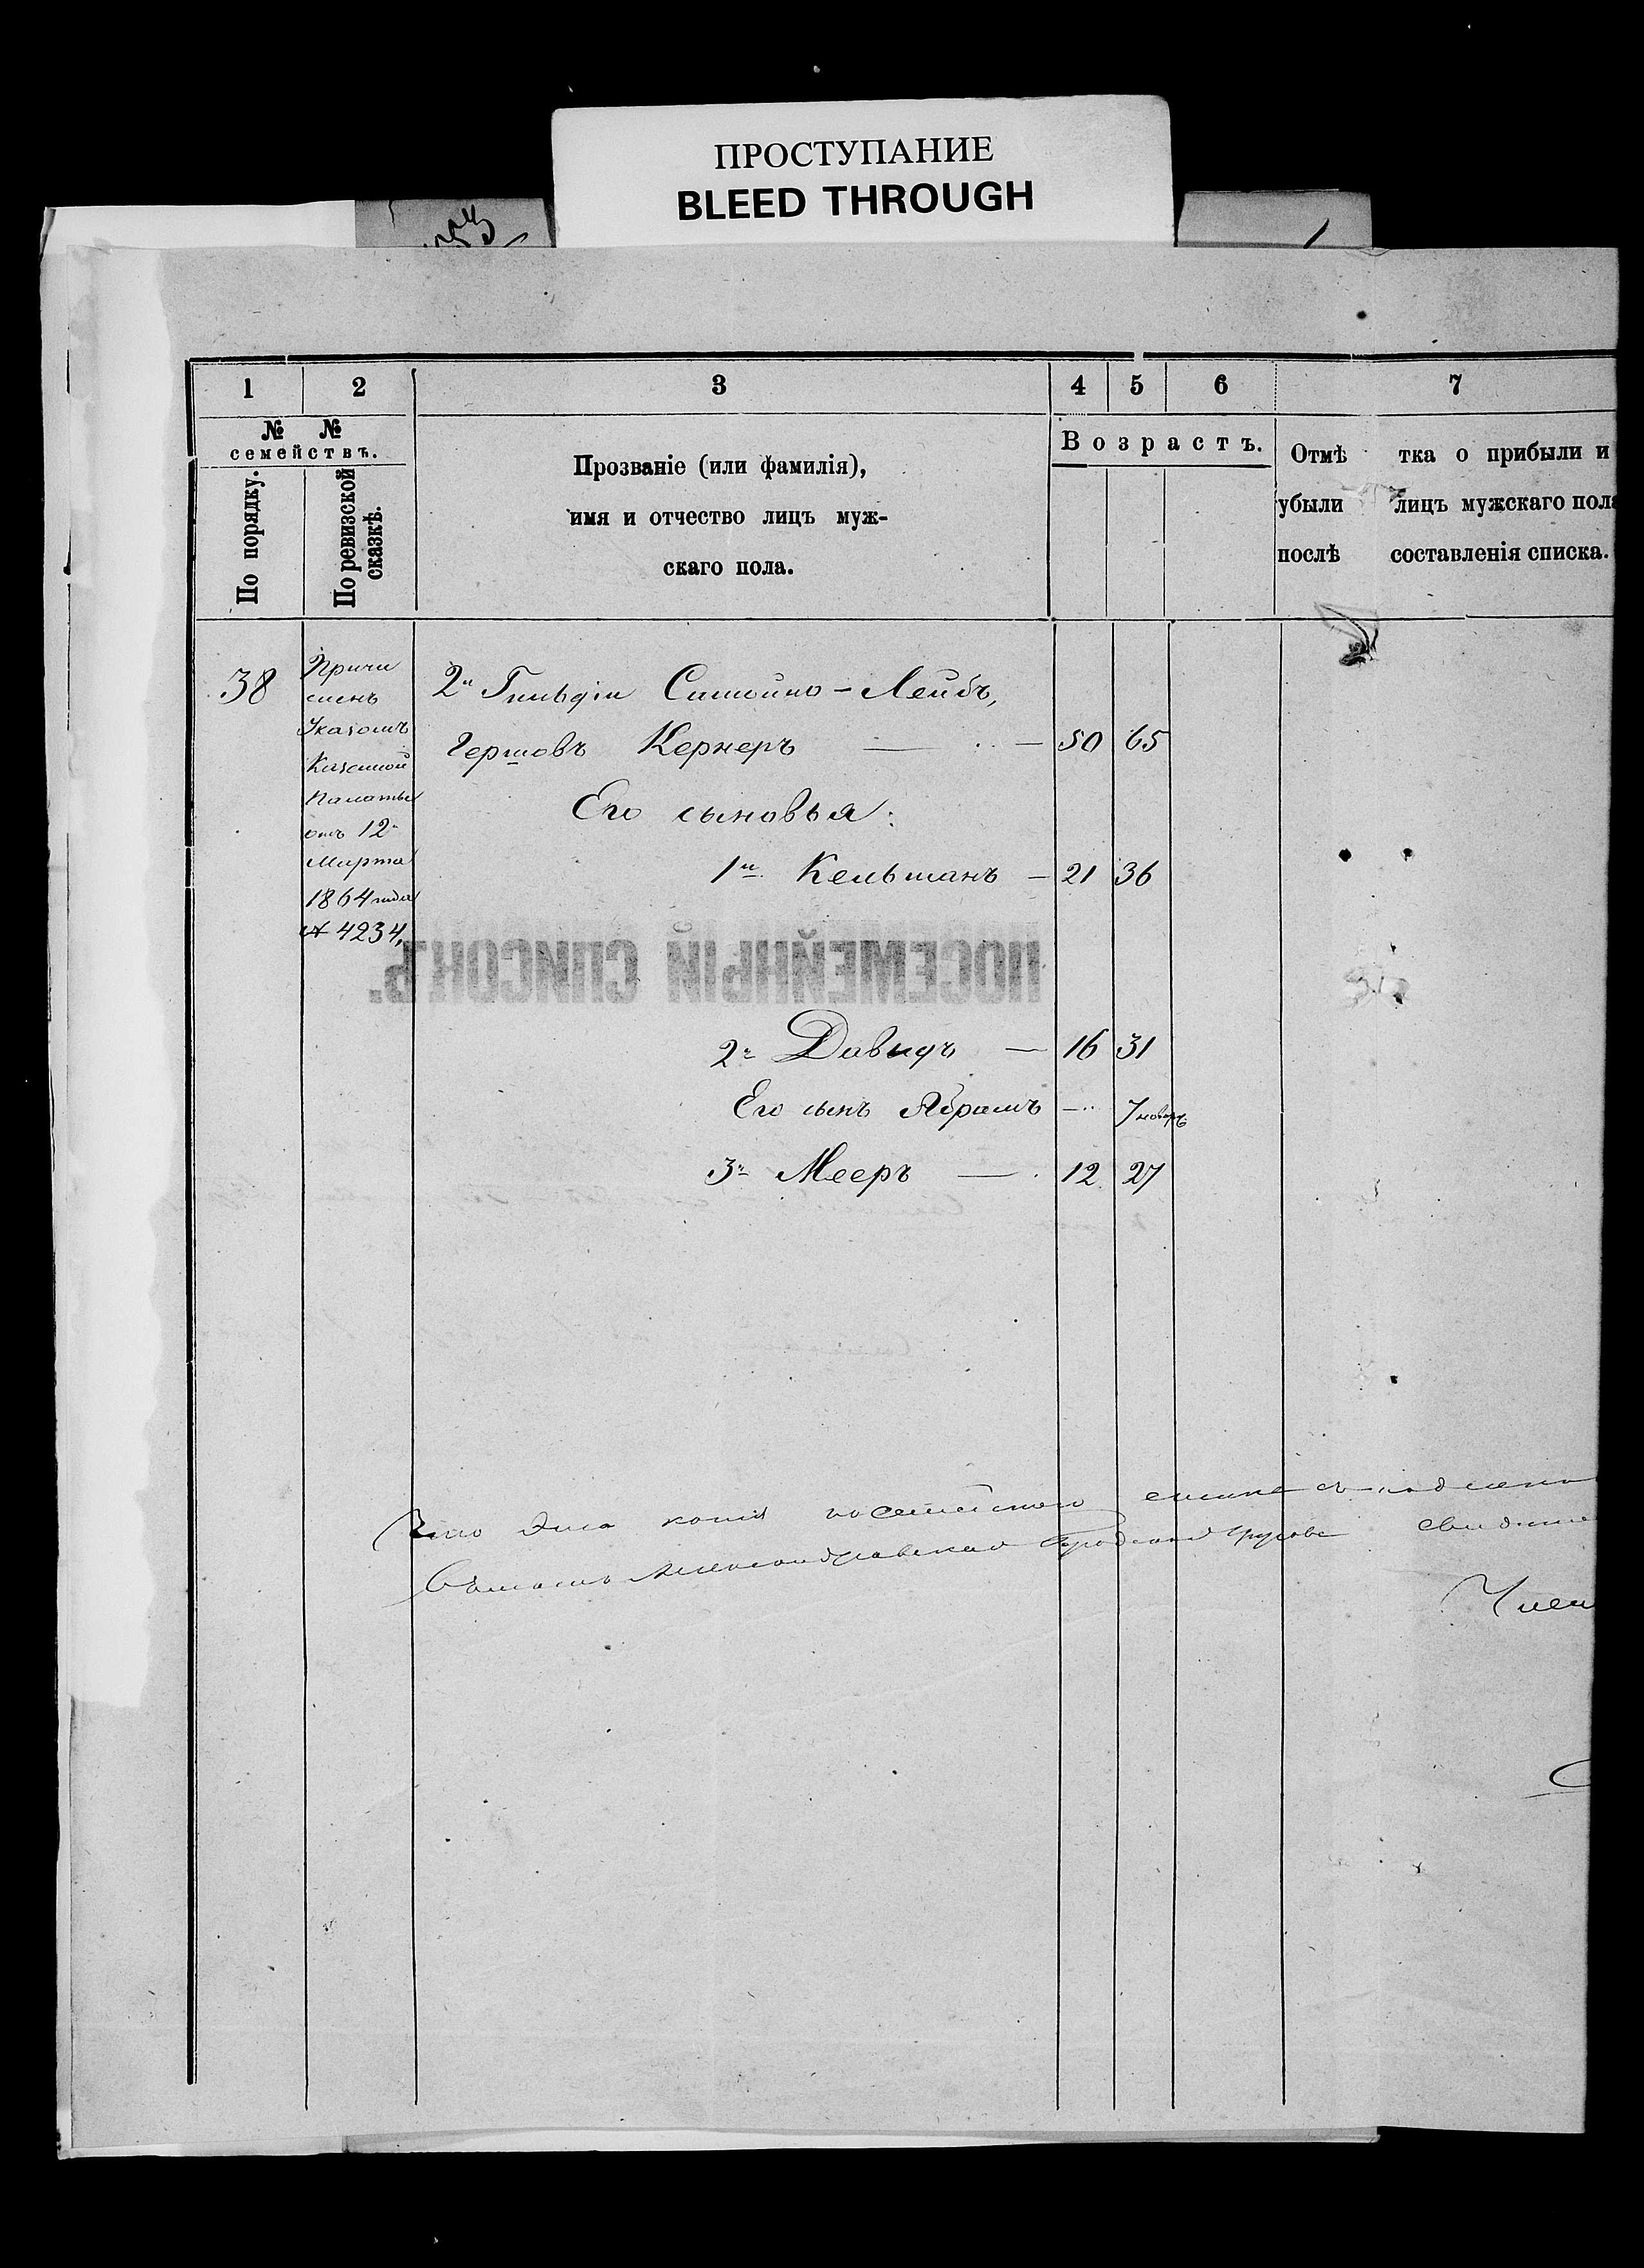 ПРОСТУПАНИЕ
BLEED THROUGH
1 2 3 4 5 6 7
№ №
семействъ.
По порядку.
По ревизской
сказкѣ.
Прозваніе (или фамилія),
имя и отчество лицъ муж-
скаго пола.
Возрастъ.
Отмѣ тка о прибыли и
убыли лицъ мужскаго пола
послѣ составленія списка.
38
Причи
сленъ
Указомъ
Казенной
Палаты
отъ 12
Марта
1864 года
№ 4234,
2й Гильдіи Симоино-Лейбъ,
Гершовъ Кернеръ — 50 65
Его сыновья:
1й Кельманъ — 21 36
ПОСЕМЕЙНЫЙ СПИСОКЪ.
2й Давидъ — 16 31
Его сынъ Абрамъ — 7 новорг
3й Мееръ — 12 27
копія
Городской Управе
Член